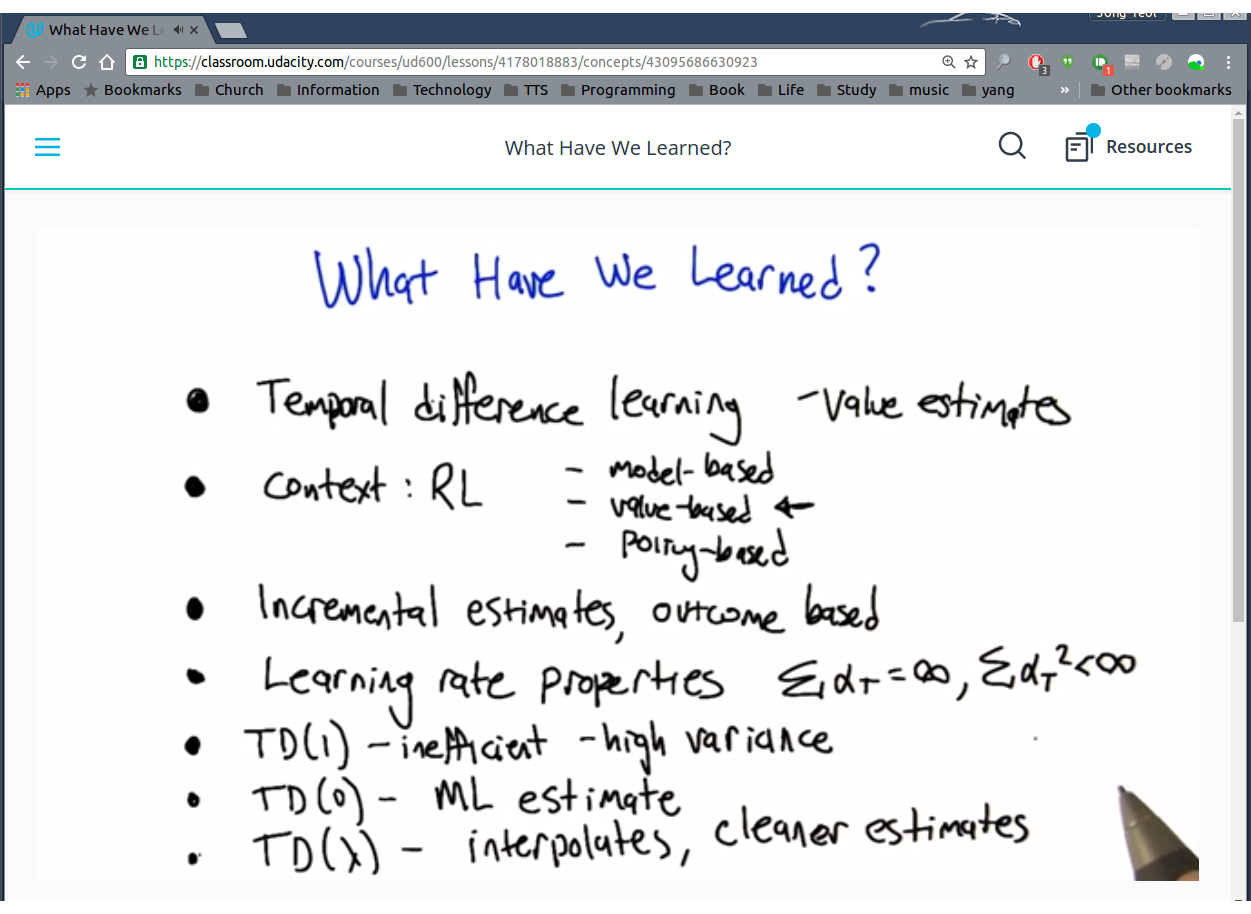 What Have We L
Jong Yeol
https://classroom.udacity.com/courses/ud600/lessons/4178018883/concepts/43095686630923
3
1
Apps Bookmarks Church Information Technology TTS Programming Book Life Study music yang » Other bookmarks
What Have We Learned?
Resources
What Have We Learned?
• Temporal difference learning - Value estimates
• Context : RL - model-based
- value-based ←
- Policy-based
• Incremental estimates, outcome based
• Learning rate properties ∑αT = ∞, ∑αT² < ∞
• TD(1) - inefficient - high variance
• TD(0) - ML estimate
• TD(λ) - interpolates, cleaner estimates